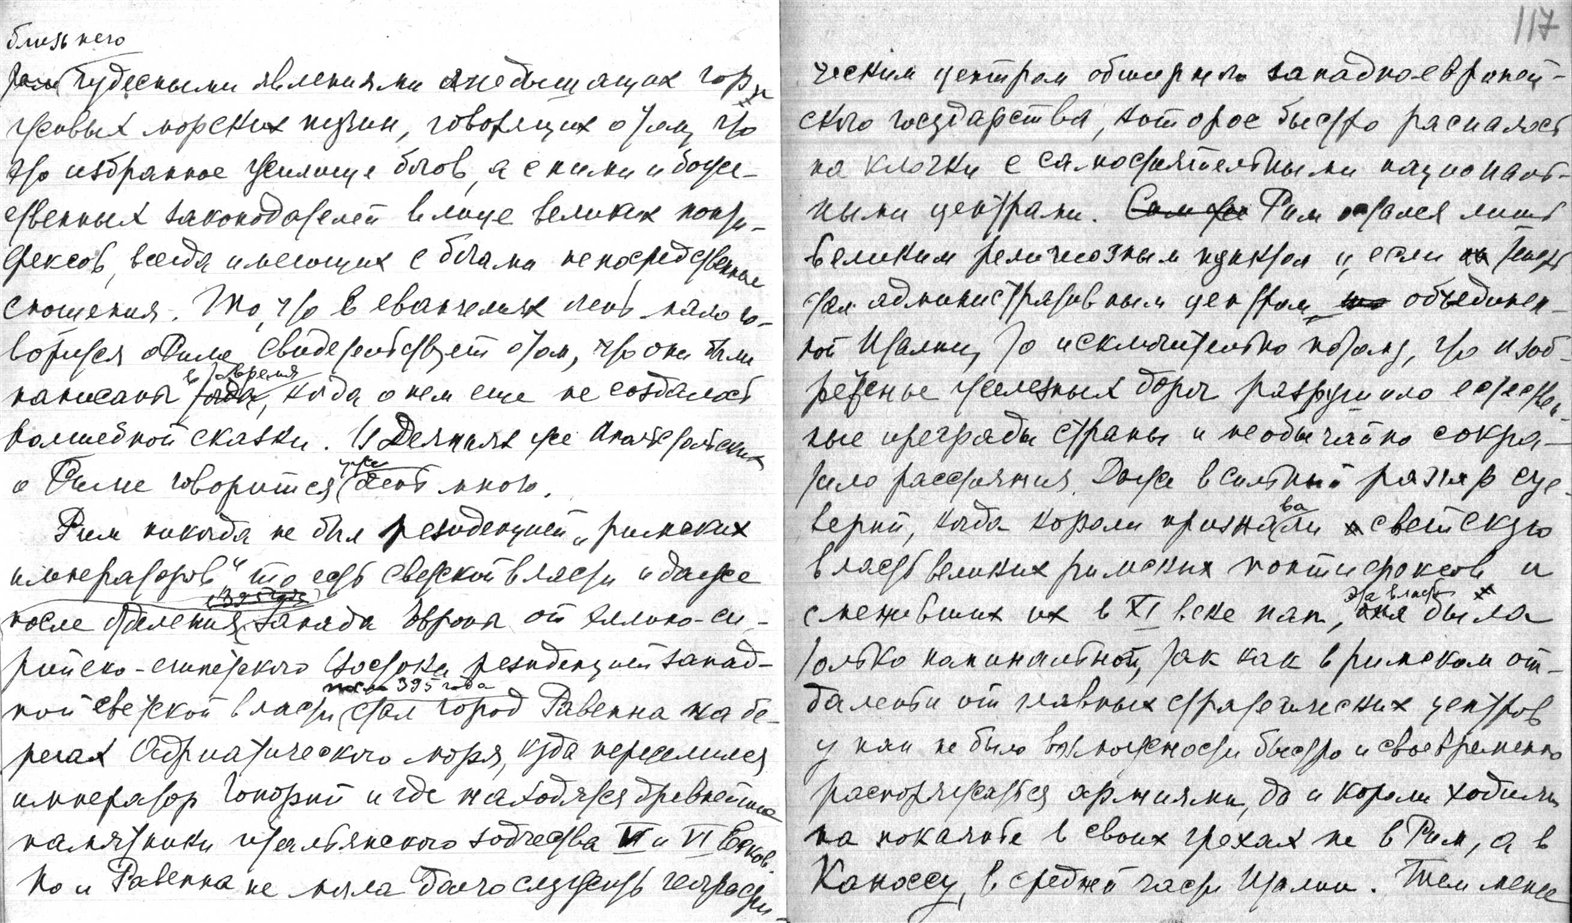 близь него
там чудесными явлениями и небывших гор и
жовых морских пучин, говорящих о том, что
это избранное жилище богов, а с ними и боже-
ственных законодателей в лице великих понти-
фексов, всегда имеющих с богами непосредственные
сношения. То, что в евангелиях очень мало го-
ворится о Риме, свидетельствует о том, что они были
в время
написаны тогда, когда о нем еще не создалось
волшебной сказки. В Деяниях же Апостольских
уже
о Риме говорится очень много.
Рим никогда не был резиденцией „римских
императоров", то есть светской власти и даже
395 года
после отделения запада Европы от эллино-си-
рийско-египетского востока резиденцией запад-
после 395 года
ной светской власти стал город Равенна на бе-
регах Адриатического моря, куда переселился
император Гонорий и где находятся древнейшие
памятники итальянского зодчества V и VI веков.
Но и Равенна не могла долго служить географи-
117
ческим центром обширного западноевропей-
ского государства, которое быстро распалось
на клочки с самостоятельными националь-
ными центрами. Сам же Рим остался лишь
великим религиозным пунктом и, если теперь
стал административным центром объединен-
ной Италии, то исключительно потому, что изоб-
ретенье железных дорог разрушило естествен-
ные преграды страны и необычайно сокра-
тило расстояния. Даже в сильный разгар суе-
ва
верий, когда короли признали светскую
власть великих римских понтифексов и
эта власть
сменивших их в XI веке пап, она была
только номинальной, так как в римском от-
далении от главных стратегических центров
у пап не было возможности быстро и своевременно
распоряжаться армиями, да и короли ходили
на покаянье в своих грехах не в Рим, а в
Каноссу, в средней части Италии. Тем менее